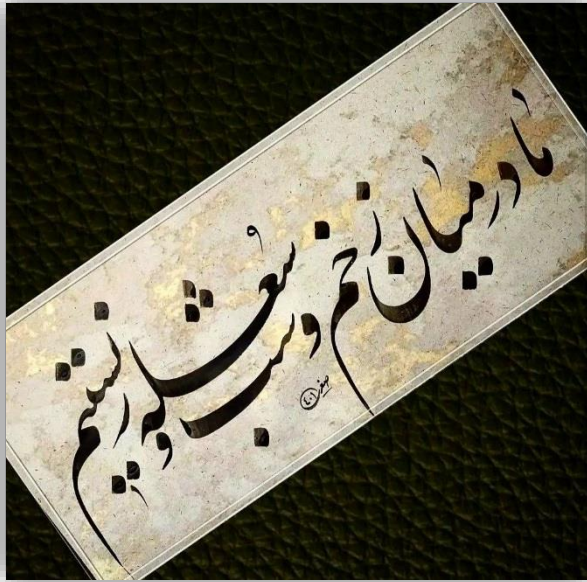 ما در میان زخم و شب و شعله زیستیم
۴۰۱